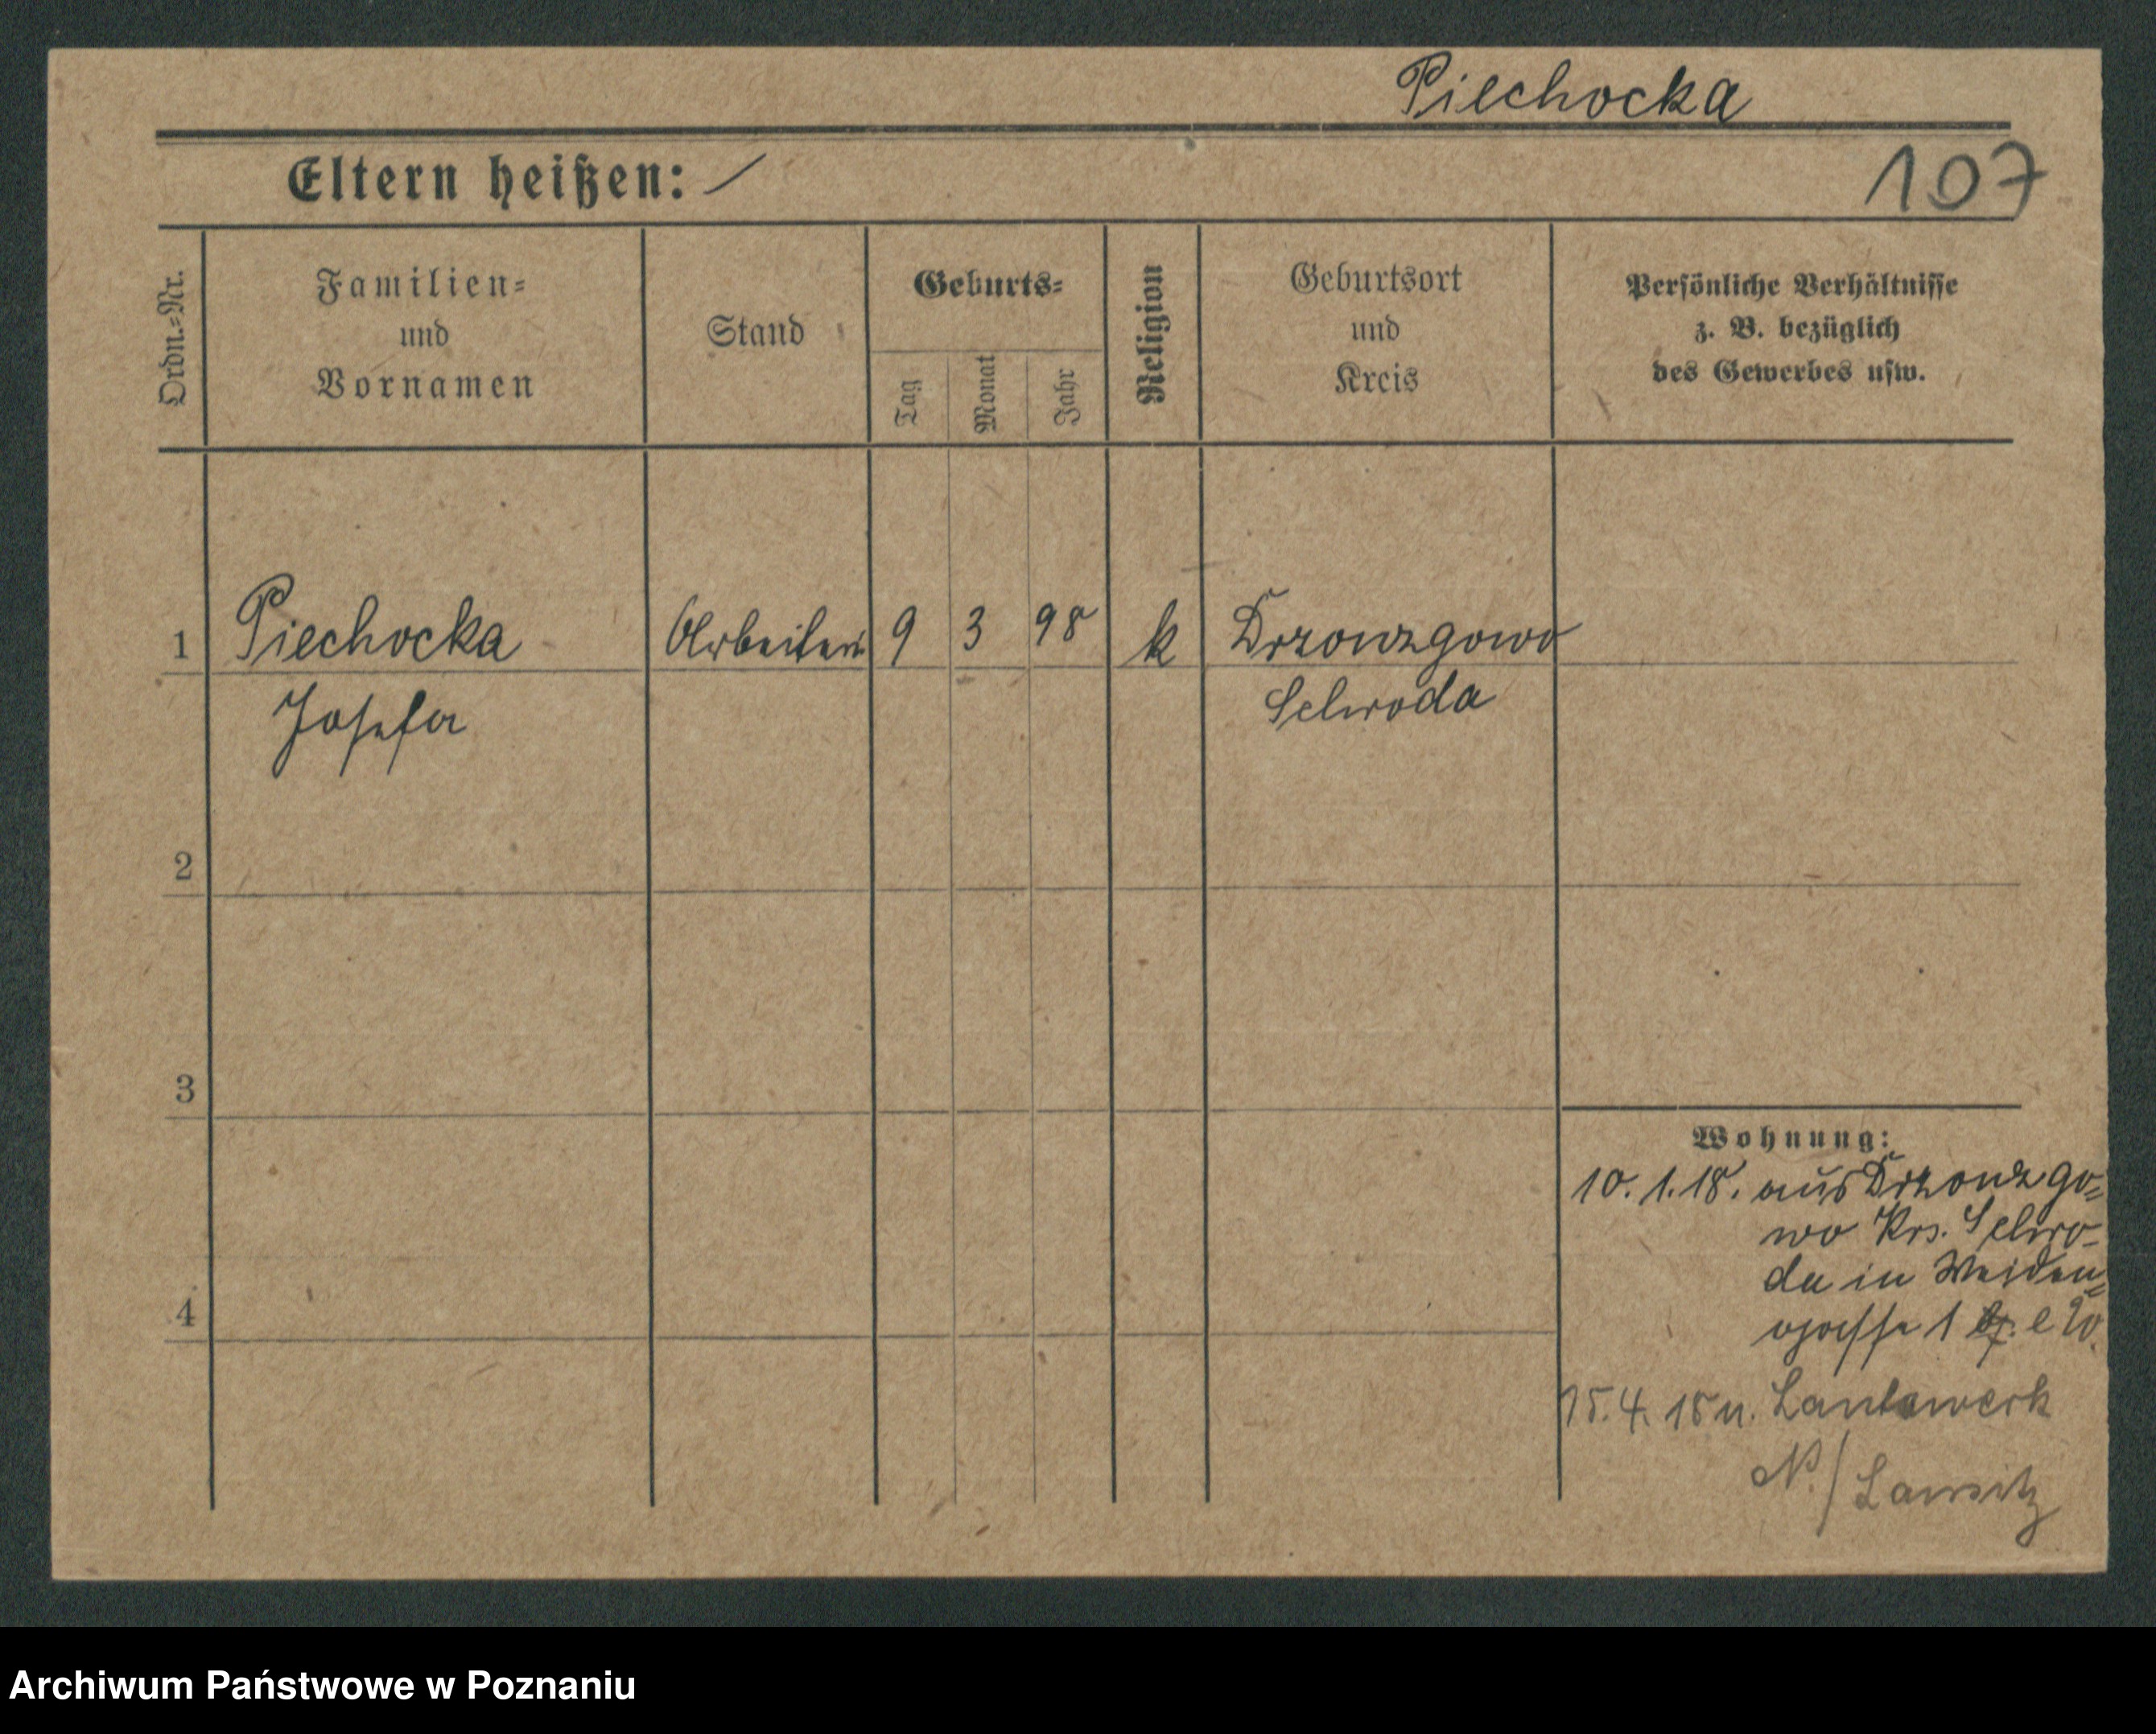 Piechocka
Eltern heißen: /
107
Ordn.=Nr.
Familien=
und
Vornamen
Stand
Geburts=
Tag
Monat
Jahr
Religion
Geburtsort
und
Kreis
Persönliche Verhältnisse
z. B. bezüglich
des Gewerbes usw.
1 Piechocka Arbeiterin 9 3 98 k Drzonzgowo
Josefa Schroda
2
3
4
Wohnung:
10. 1. 18. aus Drzonzgo=
wo Krs. Schro-
da in Weiden=
gasse 1
15. 4. 18 n.
N./Lausitz